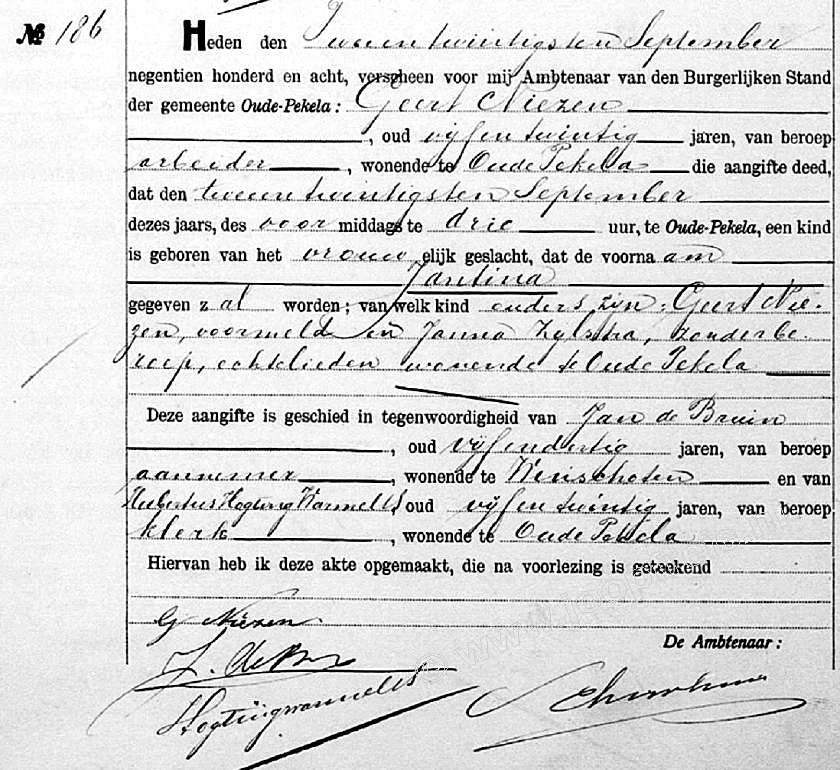 № 186
Heden den Tweeentwintigsten September
negentien honderd en acht, verscheen voor mij Ambtenaar van den Burgerlijken Stand
der gemeente Oude-Pekela: Geert Niezen
, oud vijfentwintig jaren, van beroep
arbeider, wonende te Oude Pekela die aangifte deed,
dat den tweeentwintigsten September
dezes jaars, des voor middags te drie uur, te Oude-Pekela, een kind
is geboren van het vrouw elijk geslacht, dat de voorna am
Jantina
gegeven z al worden; van welk kind ouders zijn: Geert Nie-
zen, voormeld en Janna Zylstra, zonder be-
roep, echtelieden wonende te Oude Pekela
Deze aangifte is geschied in tegenwoordigheid van Jan de Bruin
, oud vijfendertig jaren, van beroep
aannemer, wonende te Winschoten en van
Hubertus Hogting Warmelts, oud vijfentwintig jaren, van beroep
klerk, wonende te Oude Pekela
Hiervan heb ik deze akte opgemaakt, die na voorlezing is geteekend
G Niezen.
De Ambtenaar:
J. de Bruin
Hogtingwarmelts